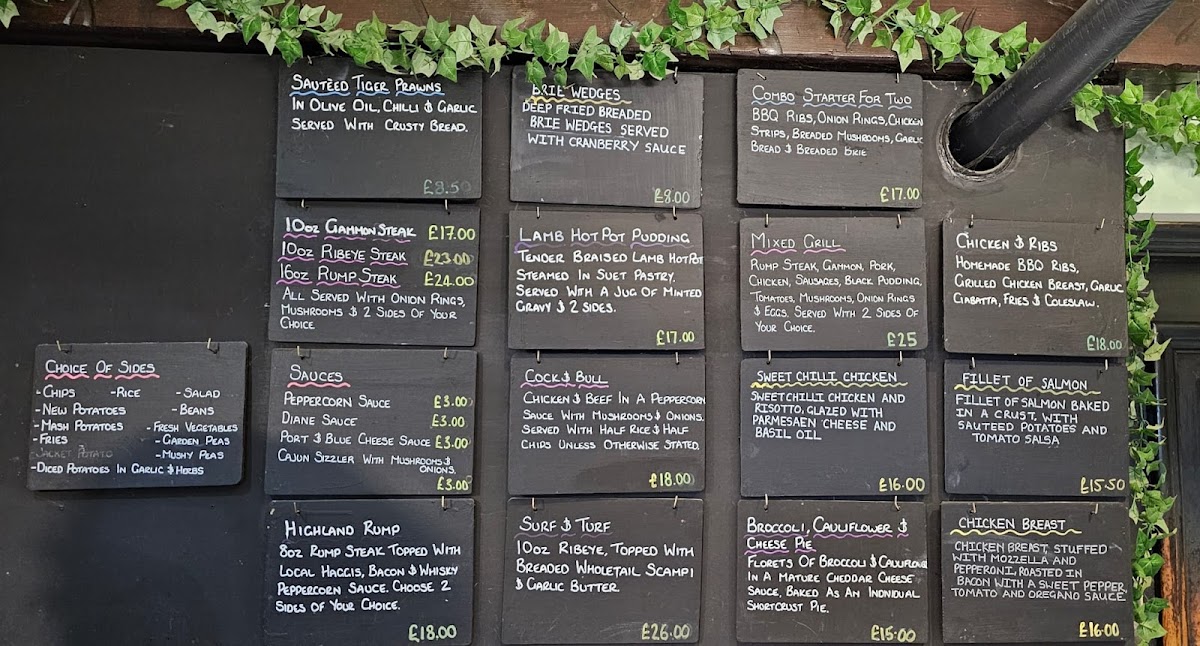 Sautèed Tiger Prawns
In Olive Oil, Chilli & Garlic
Served With Crusty Bread.
£8.50
Brie Wedges
Deep Fried Breaded
Brie Wedges Served
With Cranberry Sauce
£8.00
Combo Starter For Two
BBQ Ribs, Onion Rings, Chicken
Strips, Breaded Mushrooms, Garlic
Bread & Breaded Brie
£17.00
10oz Gammon Steak £17.00
10oz Ribeye Steak £23.00
16oz Rump Steak £24.00
All Served With Onion Rings,
Mushrooms & 2 Sides Of Your
Choice
Lamb Hot Pot Pudding
Tender Braised Lamb Hotpot
Steamed In Suet Pastry.
Served With A Jug Of Minted
Gravy & 2 Sides.
£17.00
Mixed Grill
Rump Steak, Gammon, Pork,
Chicken, Sausages, Black Pudding,
Tomatoes, Mushrooms, Onion Rings
& Eggs. Served With 2 Sides Of
Your Choice.
£25
Chicken & Ribs
Homemade BBQ Ribs,
Grilled Chicken Breast, Garlic
Ciabatta, Fries & Coleslaw.
£18.00
Choice Of Sides
-Chips -Rice -Salad
-New Potatoes -Beans
-Mash Potatoes -Fresh Vegetables
-Fries -Garden Peas
Jacket Potato -Mushy Peas
-Diced Potatoes In Garlic & Herbs
Sauces
Peppercorn Sauce £3.00
Diane Sauce £3.00
Port & Blue Cheese Sauce £3.00
Cajun Sizzler With Mushrooms &
Onions.
£3.00
Cock & Bull
Chicken & Beef In A Peppercorn
Sauce With Mushrooms & Onions.
Served With Half Rice & Half
Chips Unless Otherwise Stated.
£18.00
Sweet Chilli Chicken
Sweet Chilli Chicken and
Risotto, Glazed With
Parmesaen Cheese and
Basil Oil
£16.00
Fillet Of Salmon
Fillet Of Salmon Baked
In A Crust, With
Sauteed Potatoes and
Tomato Salsa
£15.50
Highland Rump
8oz Rump Steak Topped With
Local Haggis, Bacon & Whisky
Peppercorn Sauce. Choose 2
Sides Of Your Choice.
£18.00
Surf & Turf
10oz Ribeye, Topped With
Breaded Wholetail Scampi
& Garlic Butter.
£26.00
Broccoli, Cauliflower &
Cheese Pie
Florets Of Broccoli & Cauliflower
In A Mature Cheddar Cheese
Sauce, Baked As An Individual
Shortcrust Pie.
£15.00
Chicken Breast
Chicken Breast, Stuffed
With Mozzella and
Pepperoni, Roasted In
Bacon With A Sweet Pepper,
Tomato and Oregano Sauce.
£16.00